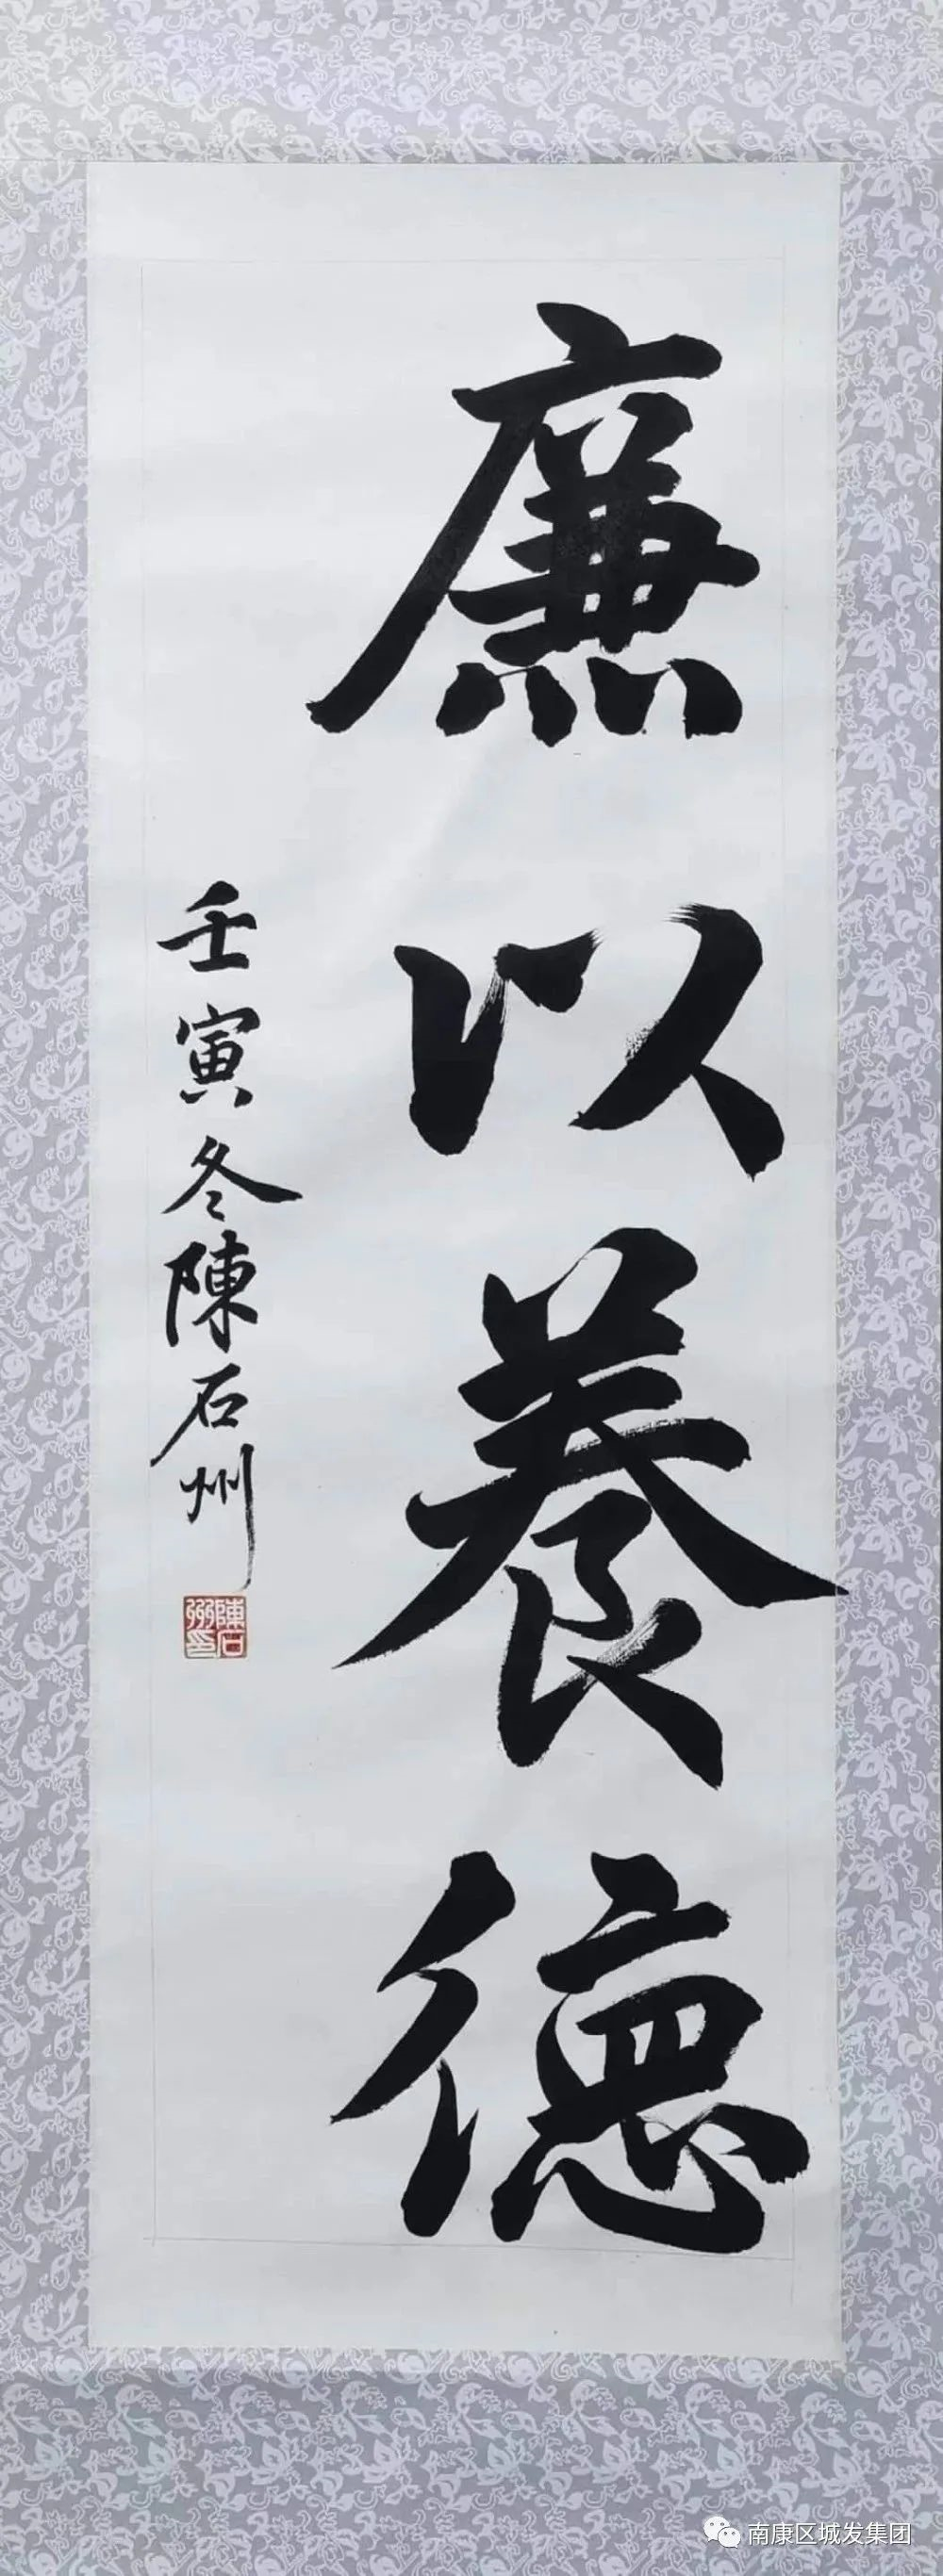 廉以養德
壬寅冬陳石州
陳石州印
南康区城发集团